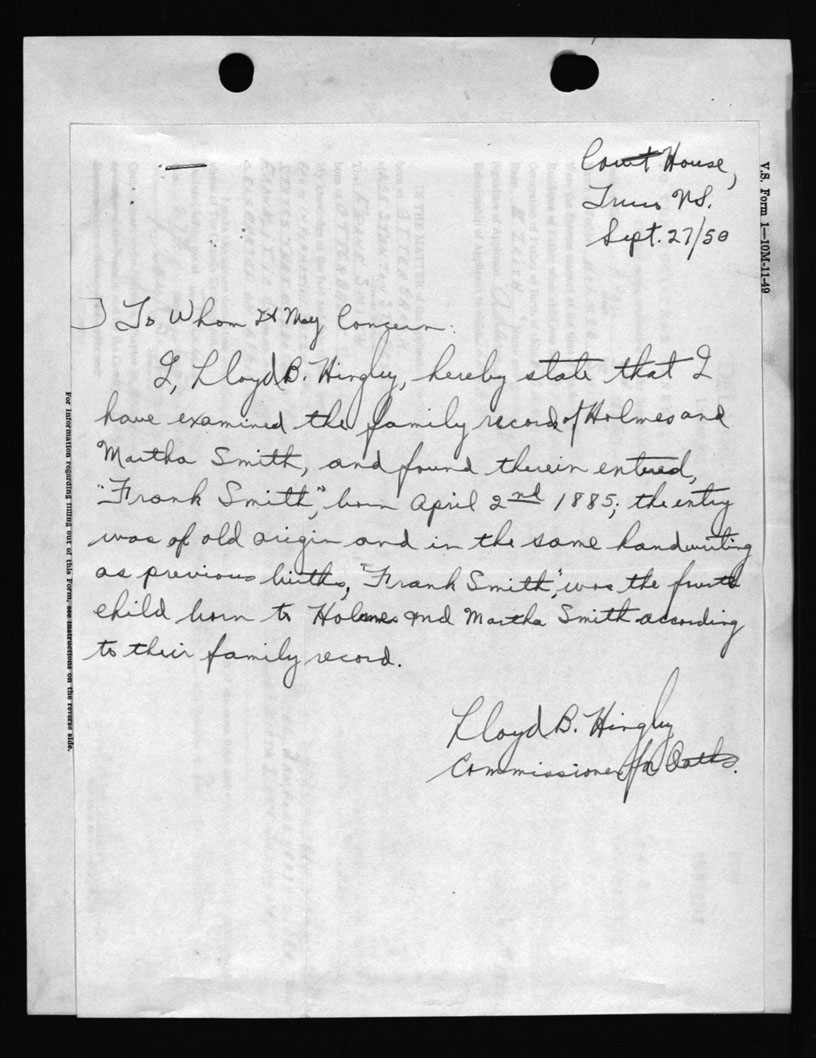 Court House,
Truro N.S.
Sept. 27/50
V.S. Form 1—10M-11-49
To Whom It May Concern:
I, Lloyd B. Hingley, hereby state that I
have examined the family record of Holmes and
Martha Smith, and found therein entered,
"Frank Smith", born April 2nd 1885; the entry
was of old origin and in the same handwriting
as previous births, "Frank Smith", was the
child born to Holmes and Martha Smith according
to their family record.
Lloyd B. Hingley
Commissioner for Oaths.
For information regarding filling out of this Form, see instructions on the reverse side.